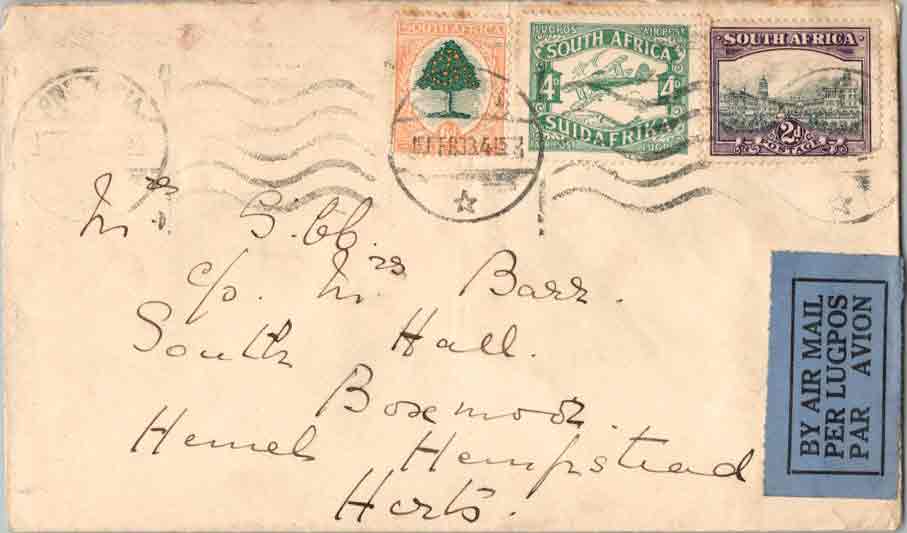 SOUTH AFRICA
6d
LUGPOS AIR POST
SOUTH AFRICA
4D 4D
SUIDAFRIKA
AIR POST LUGPOS
SOUTH AFRICA
2d
POSTAGE
FEB 33 4 15
Mrs Gibb.
c/o. Mrs Barr.
South Hall.
Boxmoor.
Hemel Hempstead
Herts.
BY AIR MAIL
PER LUGPOS
PAR AVION